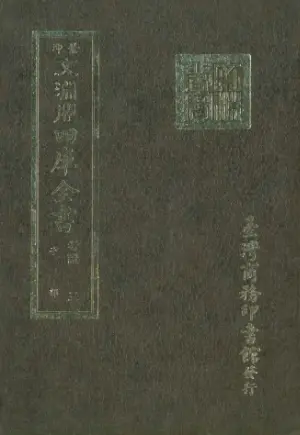 景印
文淵閣四庫全書
臺灣商務印書館發行